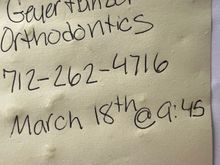 Orthodontics
712-262-4716
March 18th @ 9:45